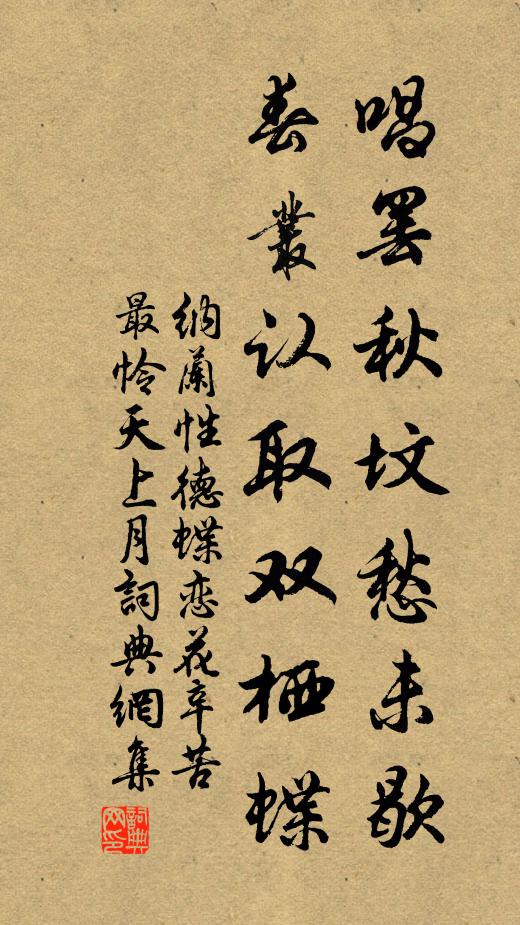 唱罢秋坟愁未歇
春叢认取双栖蝶
纳蘭性德蝶恋花辛苦
最怜天上月詞典網集
詞典网印